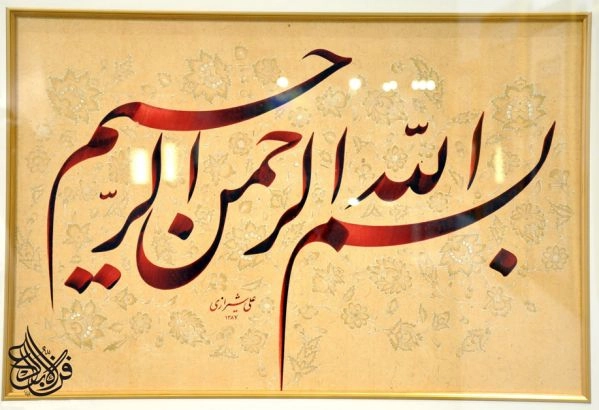 بسم الله الرحمن الرحیم
علی شیرازی
۱۳۸۷